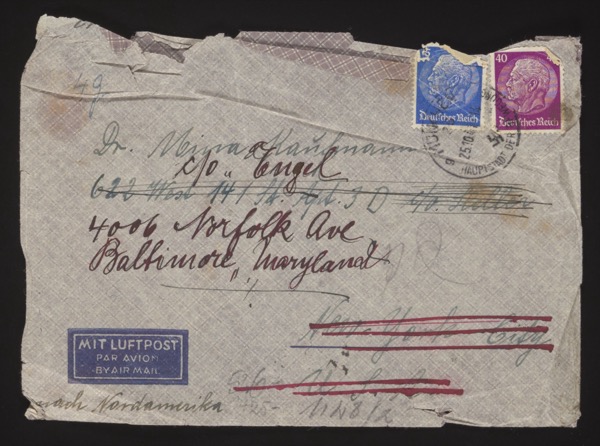 49
25
40
Deutsches Reich
Deutsches Reich
25.10.
HAUPTSTADT DER
Dr. Kaufmann
c/o Engel
622 West 141 St. Apt. 3 D c/o
4006 Norfolk Ave
Baltimore, Maryland
New-York
City
U.S.A.
MIT LUFTPOST
PAR AVION
BY AIR MAIL
nach Nordamerika